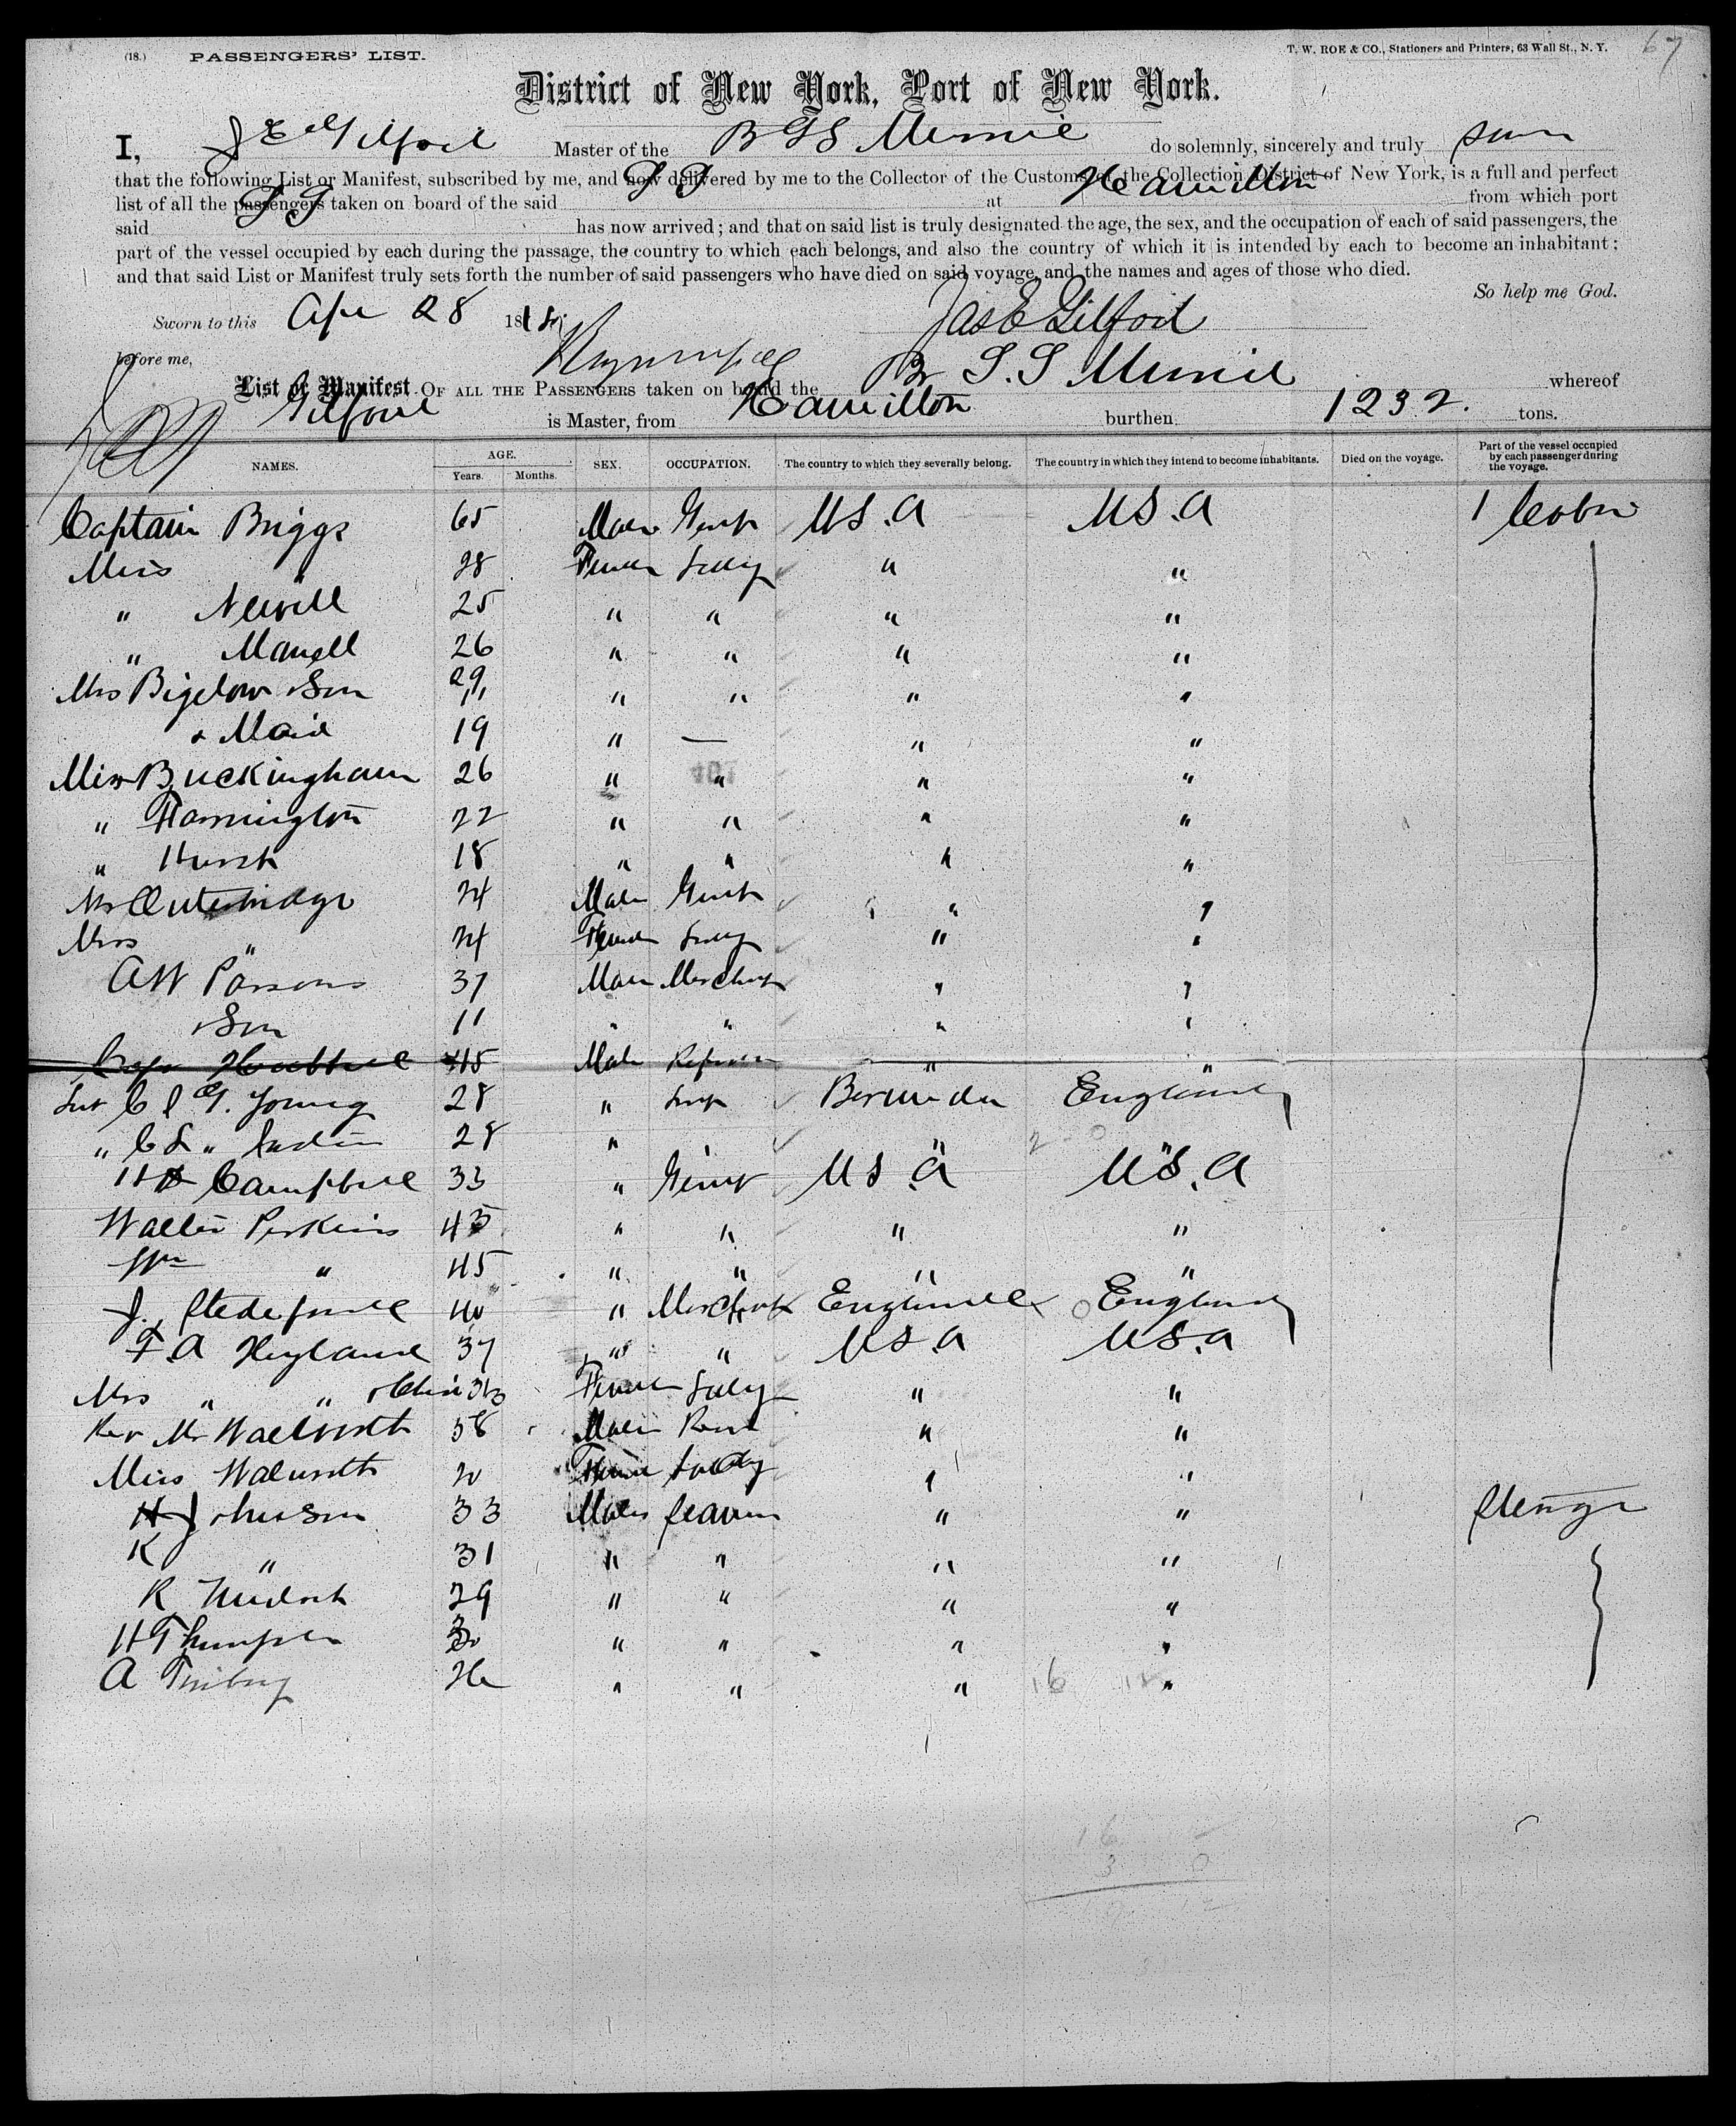 (18.) PASSENGERS' LIST. T. W. ROE & CO., Stationers and Printers, 63 Wall St., N. Y. 67
District of New York, Port of New York.
I, J E Gilford Master of the B SS Muriel do solemnly, sincerely and truly
that the following List or Manifest, subscribed by me, and now delivered by me to the Collector of the Customs of the Collection District of New York, is a full and perfect
list of all the passengers taken on board of the said at Hamilton from which port
said has now arrived; and that on said list is truly designated the age, the sex, and the occupation of each of said passengers, the
part of the vessel occupied by each during the passage, the country to which each belongs, and also the country of which it is intended by each to become an inhabitant;
and that said List or Manifest truly sets forth the number of said passengers who have died on said voyage, and the names and ages of those who died.
So help me God.
Sworn to this Apr 28 18 Jas E Gilford
before me,
List or Manifest OF ALL THE PASSENGERS taken on board the Br S.S Muriel whereof
Gilford is Master, from Hamilton burthen 1232. tons.
NAMES. AGE. Years. Months. SEX. OCCUPATION. The country to which they severally belong. The country in which they intend to become inhabitants. Died on the voyage. Part of the vessel occupied by each passenger during the voyage.
Captain Briggs 65 Male Gent US.A US.A 1 Cabin
Miss " 28 Female Lady " "
" Newell 25 " " " "
" 26 " " " "
Mrs Bigelow & Son 29 11 " " " "
& Maid 19 " — " "
Miss Buckingham 26 " " " "
" Farrington 22 " " " "
" Hurst 18 " " " "
Mr Outerbridge 24 Male Gent " "
Mrs " 24 Female Lady " "
A W Parsons 37 Male Mercht " "
& Son 11 " " " "
45 Male " "
Young 28 " Bermuda England
28 " " "
Campbell 33 " Gent US.A US.A
Walter Perkins 45 " " " "
Wm " 45 " " " "
J. 40 " Mercht England England
F.A Hyland 37 " " US.A US.A
Mrs " " Female Lady " "
Rev Mr Walworth 58 Male " "
Miss Walworth 20 Female Lady " "
H Johnson 33 Male Seaman " " Steerage
K " 31 " " " "
R 29 " " " "
H Thompson 30 " " " "
A 26 " " " "
16
3 0